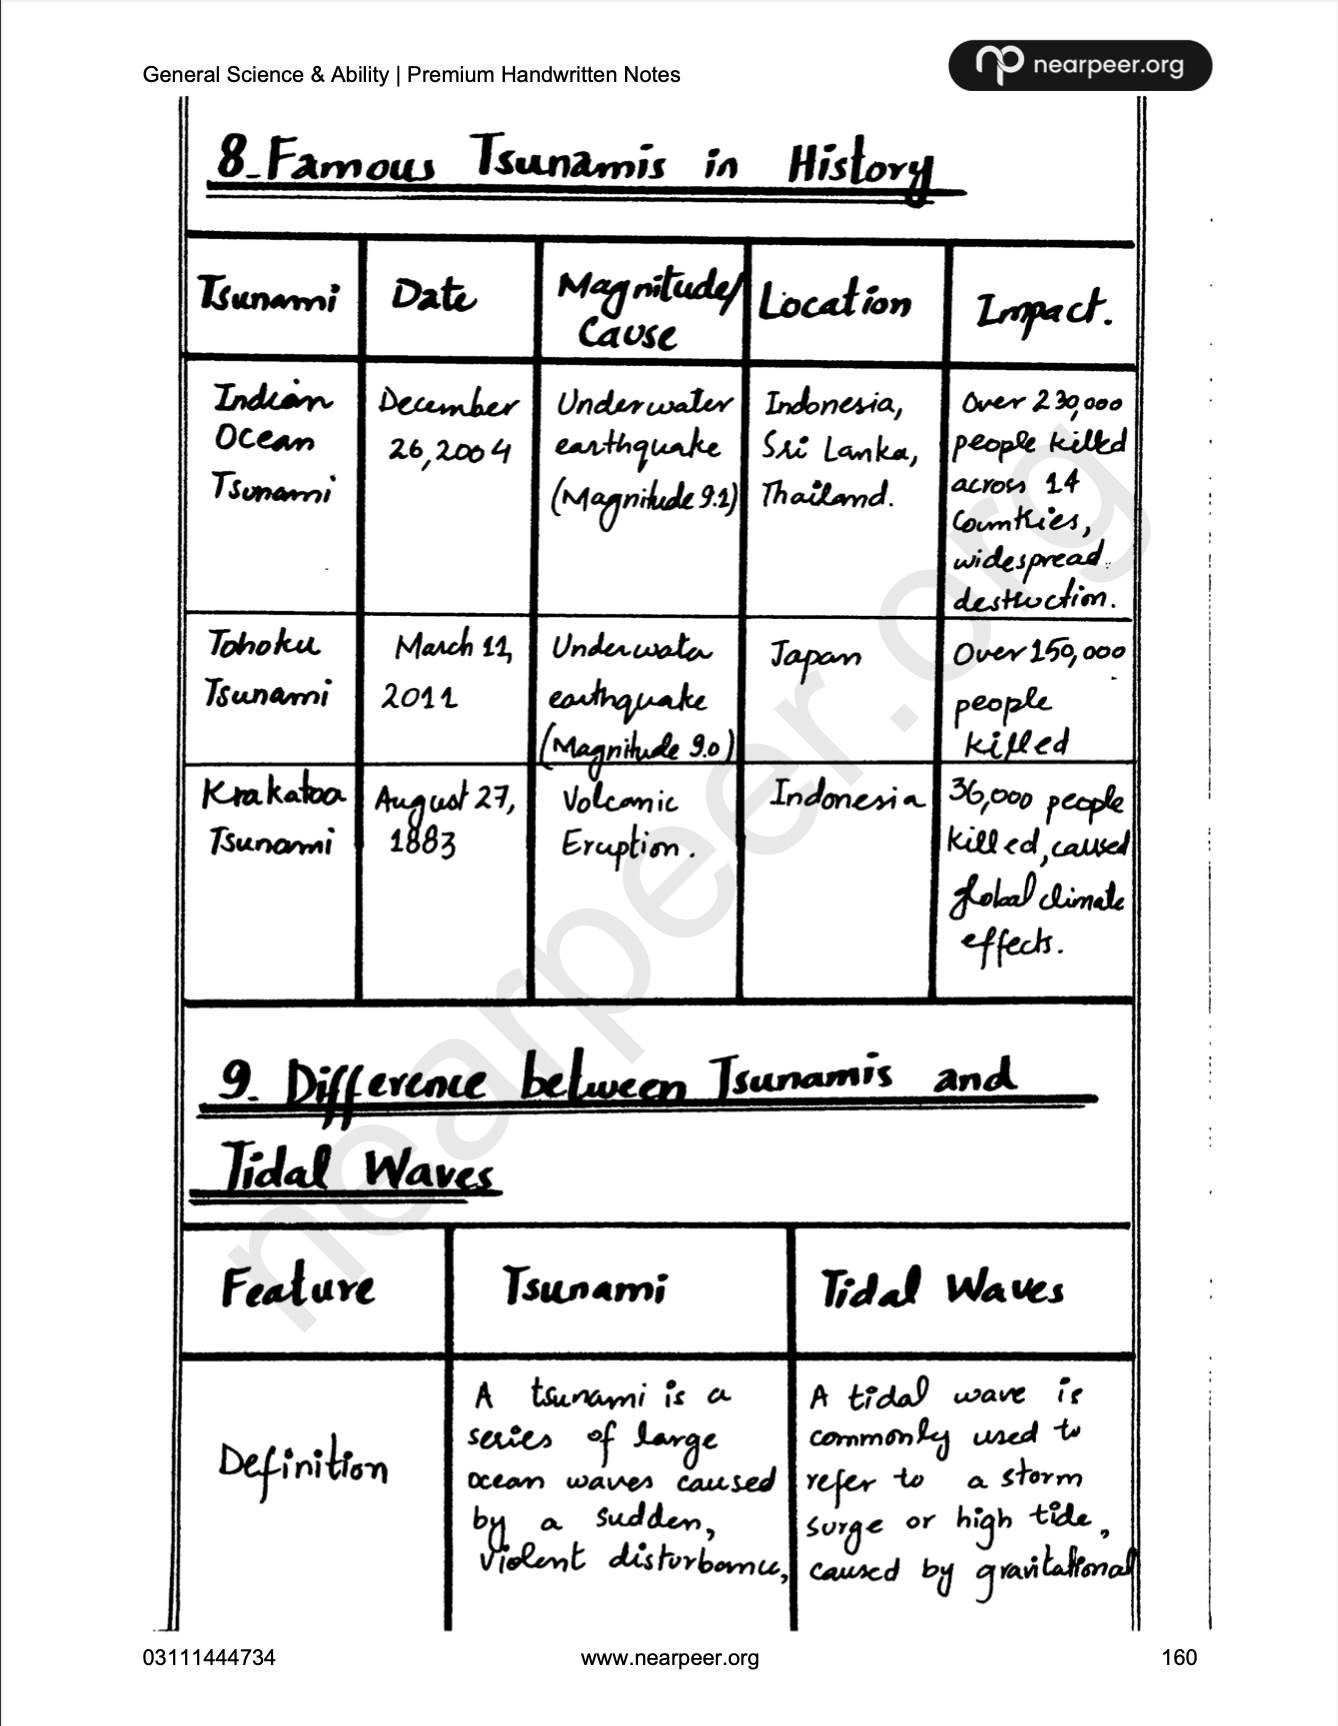 General Science & Ability | Premium Handwritten Notes
nearpeer.org
8_Famous Tsunamis in History
Tsunami
Date
Magnitude/
Cause
Location
Impact.
Indian
Ocean
Tsunami
December
26,2004
Underwater
earthquake
(Magnitude 9.1)
Indonesia,
Sri Lanka,
Thailand.
Over 230,000
people killed
across 14
Countries,
widespread
destruction.
Tohoku
Tsunami
March 11,
2011
Underwater
earthquake
(Magnitude 9.0)
Japan
Over 150,000
people
killed
Krakatoa
Tsunami
August 27,
1883
Volcanic
Eruption.
Indonesia
36,000 people
killed, caused
global climate
effects.
9. Difference between Tsunamis and
Tidal Waves
Feature
Tsunami
Tidal Waves
Definition
A tsunami is a
series of large
ocean waves caused
by a sudden,
violent disturbance,
A tidal wave is
commonly used to
refer to a storm
surge or high tide,
caused by gravitational
nearpeer.org
03111444734
www.nearpeer.org
160